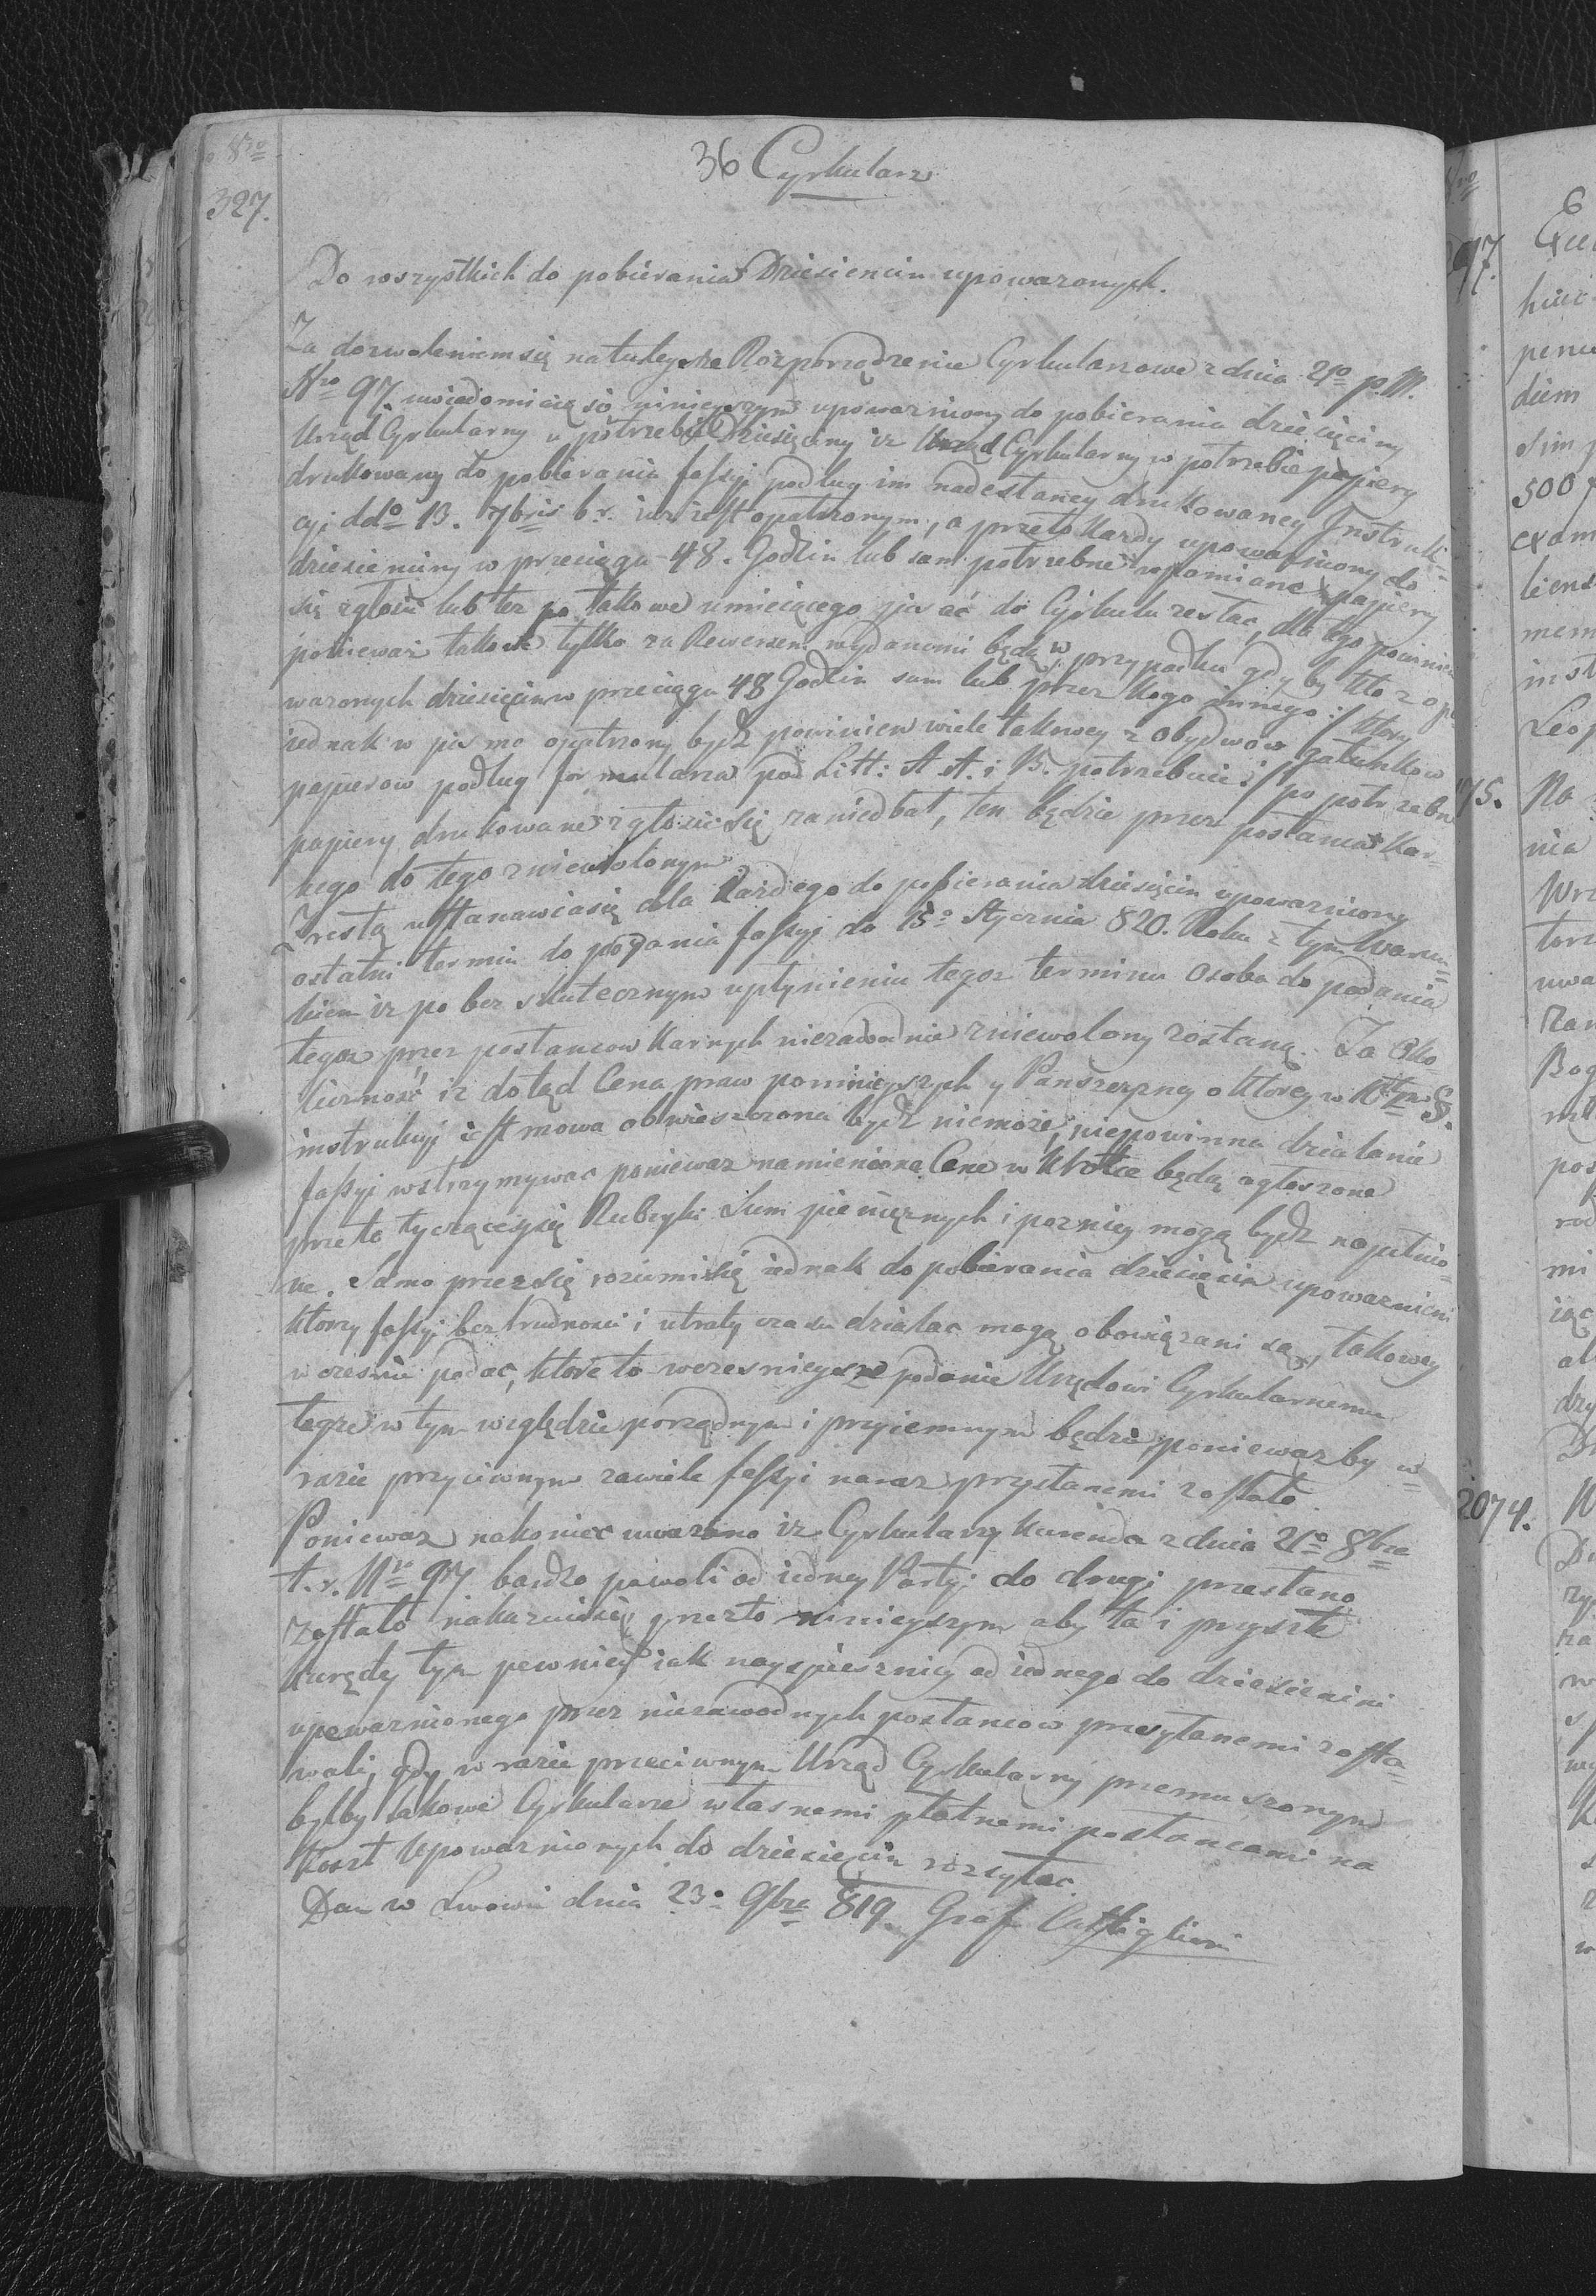 8ro
327.
36 Cyrkularz
Do wszystkich do pobierania Dziesiencin upoważonych.
Za dozwoleniem się na tuteysze Rozporządzenie Cyrkularzowe z dnia 21o p. M.
Nro 97. uwiadomia się ninieyszym upoważniony do pobierania dziesięciny
Urząd Cyrkularny w potrzebie Dziesięciny iż Urząd Cyrkularny w potrzebie papiery
drukowany do pobierania fassyi podług im nadesłaney drukowaney Instruk-
cyi ddo 13. 7bris b.r. iuż jest opatrzonym, a przeto Kazdy upowazniony do
dziesienciny w przeciągu 48. Godzin lub sam potrzebne wspomiane papiery
się zgłosić lub tez po takowe umieiącego pisać do Cyrkułu zesłac, dla tego powinien
poniewaz takowe tylko za Rewersem wydanemi będą w przypadku gdy by kto z upo
wazonych dziesięcin w przeciągu 48 Godzin sam lub przez kogo innego :/ ktory
iednak w pismo opatrzony bydź powinien wiele takowey z obydwow gatunkow
papierow podług formularza pod Litt: A. A. i B. potrzebuie :/ po potrzebne
papiery drukowane zgłosić się zaniedbał, ten będzie przez posłańca Kar-
nego do tego zniewolonym
Zresztą ustanawia się dla Kazdego do pobierania dziesięcin upowazniony
ostatni termin do podania fassyi do 15o Stycznia 820. Roku z tym Warun-
kiem iz po bez skutecznym upłynieniu tegoz terminu Osoba do podania
tegoz przez posłancow Karnych niezawodnie zniewolony zostaną. Ta Oko-
liczność iz dotąd Cena praw pomnieyszych y Panszczyzney o ktorey w 10tym §.
instrukcyi iest mowa obwieszczona bydź niemoze, niepowinna działanie
fassyi wstrzymywac poniewaz namieniona Cene w krótce będą ogłoszone
przeto tyczące się Rubryki Sum pieniężnych i pozniey mogą bydź napełnio-
ne. Samo przez się rozumi się iednak do pobierania dziesięcin upowaznieni
ktorzy fassyi bez trudnosci i utraty czasu działac mogą obowiązani są, takowey
wczesnie podac, które to wczesnieysze podanie Urzędowi Cyrkularnemu
tegze w tym względzie porządnym i przyiemnym będzie poniewaz by w
razie przyciwnym zawiele fassyi naraz przysłanemi zostało.
Poniewaz nakoniec uwazono iz Cyrkularzy Kurenda z dnia 21o 8bra
t. r. Nro 97 bardzo powoli od iedney Partyi do drugi przesłano
zostało nakazuie się przeto ninieyszym aby ta i przyszłe
kurędy tym pewniey iak nayspieszniey od iednego do dziesiencini
upowaznionego przez niezawodnych posłancow przesyłanemi zosta-
wali, gdy w razie przeciwnym Urząd Cyrkularny przemuszonym
byłby takowe Cyrkularze własnemi płatnemi posłancami na
koszt Upowaznionych do dziesięcin rozsyłac.
Dan w Lwowie dnia 23o 9bra 819 Graf Castiglioni
97.
75.
2074.
500